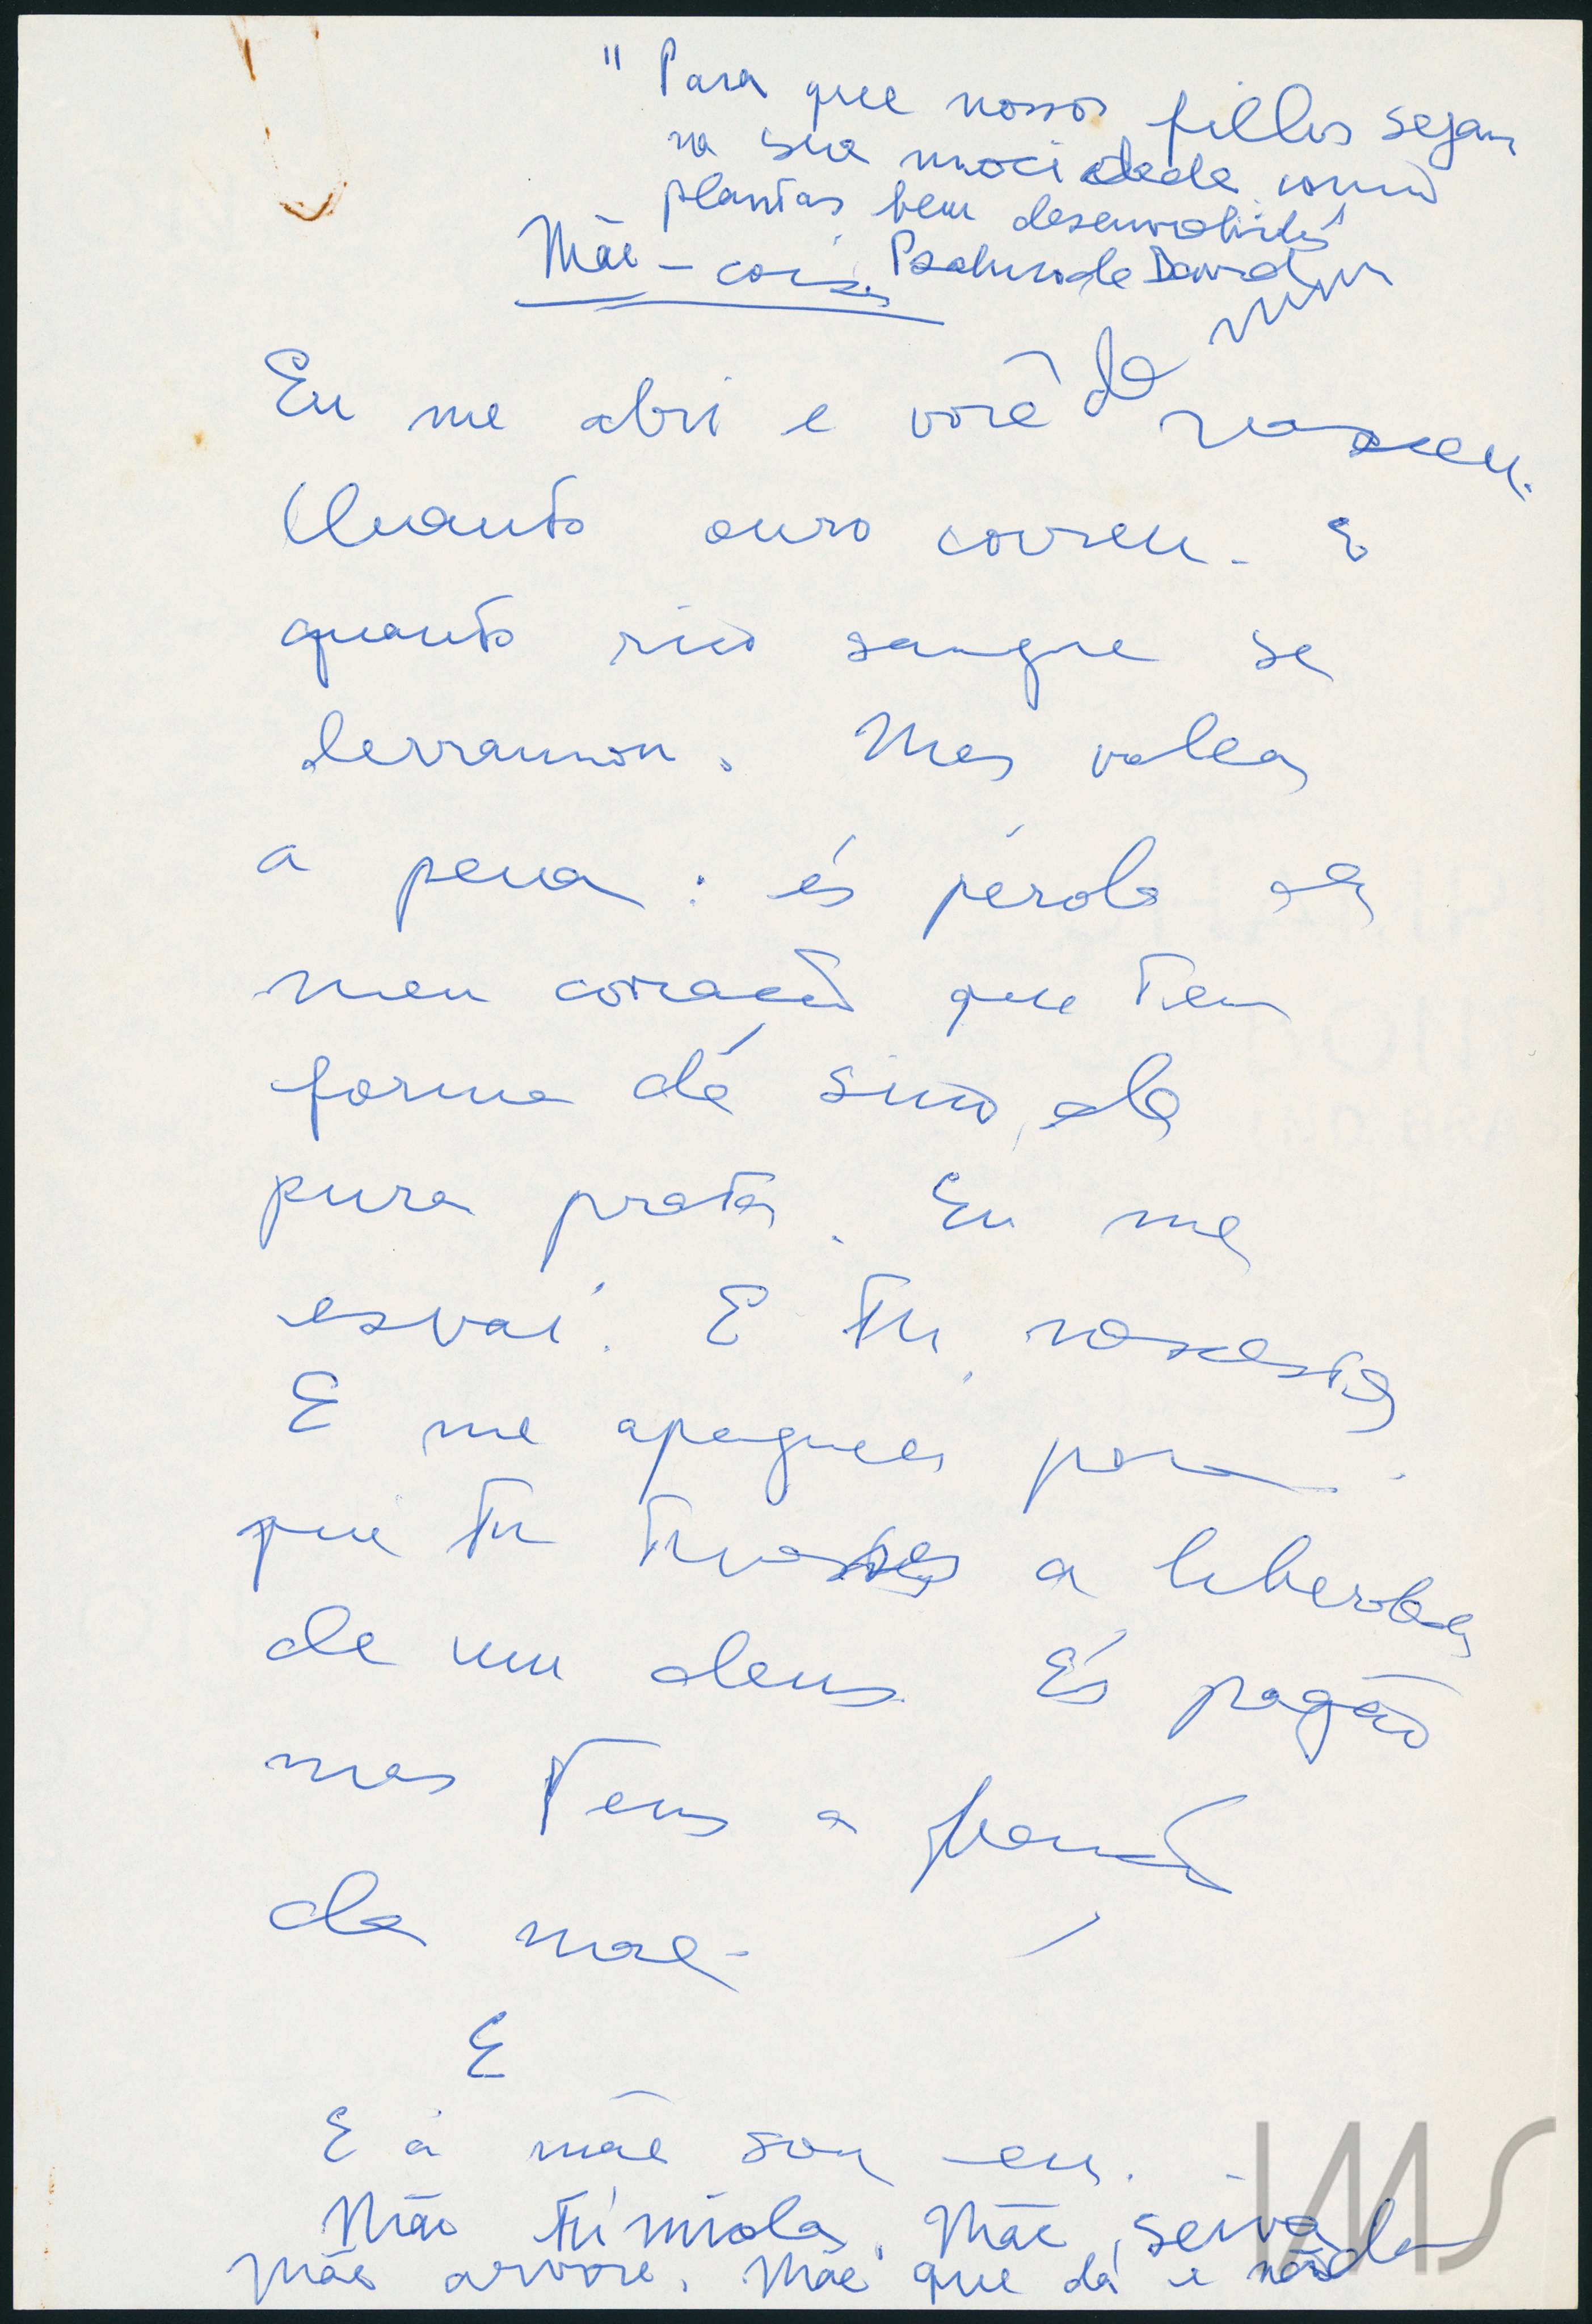 "Para que nossos filhos sejam
na sua mocidade como
plantas bem desenvolvidas"
Mãe-coisa Psalmo de David
de mim
Eu me abri e você nasceu.
Quanto ouro correu. E
quanto rico sangue se
derramou. Mas valeu
a pena: és pérola de
meu coração que tem
forma de sino de
pura prata. Eu me
esvaí. E tu nasceste
E me apaguei para
que tu tivesses a liberdade
de um deus. És pagão
mas tens a
da mãe.
E
E a mãe sou eu.
Mãe túmida. Mãe seiva da
Mãe árvore. Mãe que dá e nada
IMS